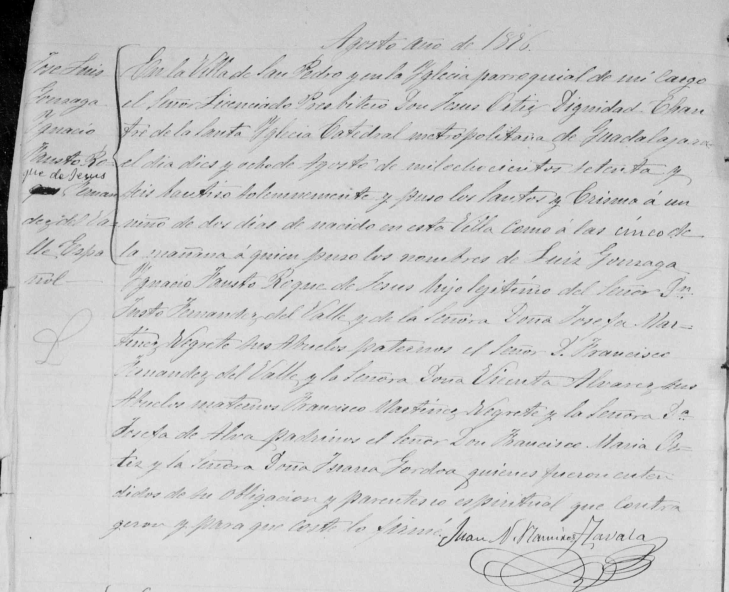 Agosto año de 1876.
José Luis
Gonzaga
Ygnacio
Fausto Ro-
que de Jesus
Fernan
dez del Va-
lle Espa
ñol
En la Villa de San Pedro y en la Yglecia parroquial de mi cargo
el Señor Licenciado Presbitero Don Jesus Ortiz Dignidad Chan
tre de la Santa Yglecia Catedral metropolitana de Guadalajara
el dia dies y ocho de Agosto de mil ochocientos setenta y
seis bautiso solemnemente y puso los santos y Crisma á un
niño de dos dias de nacido en esta Villa como á las cinco de
la mañana á quien puso los nombres de Luis Gonzaga
Ygnacio Fausto Roque de Jesus hijo legitimo del Señor Dn.
Justo Fernandez del Valle y de la Señora Doña Josefa Mar-
tinez Negrete sus Abuelos paternos el Señor D. Francisco
Fernandez del Valle y la Señora Doña Vicenta Alvarez, sus
Abuelos maternos Francisco Martinez Negrete y la Señora Da.
Josefa de Alva padrinos el Señor Don Francisco Maria Or-
tiz y la Señora Doña Juana Gordoa quienes fueron enten
didos de su obligacion y parentesco espiritual que contra
geron y para que conste lo firmé.
Juan N. Ramirez Zavala